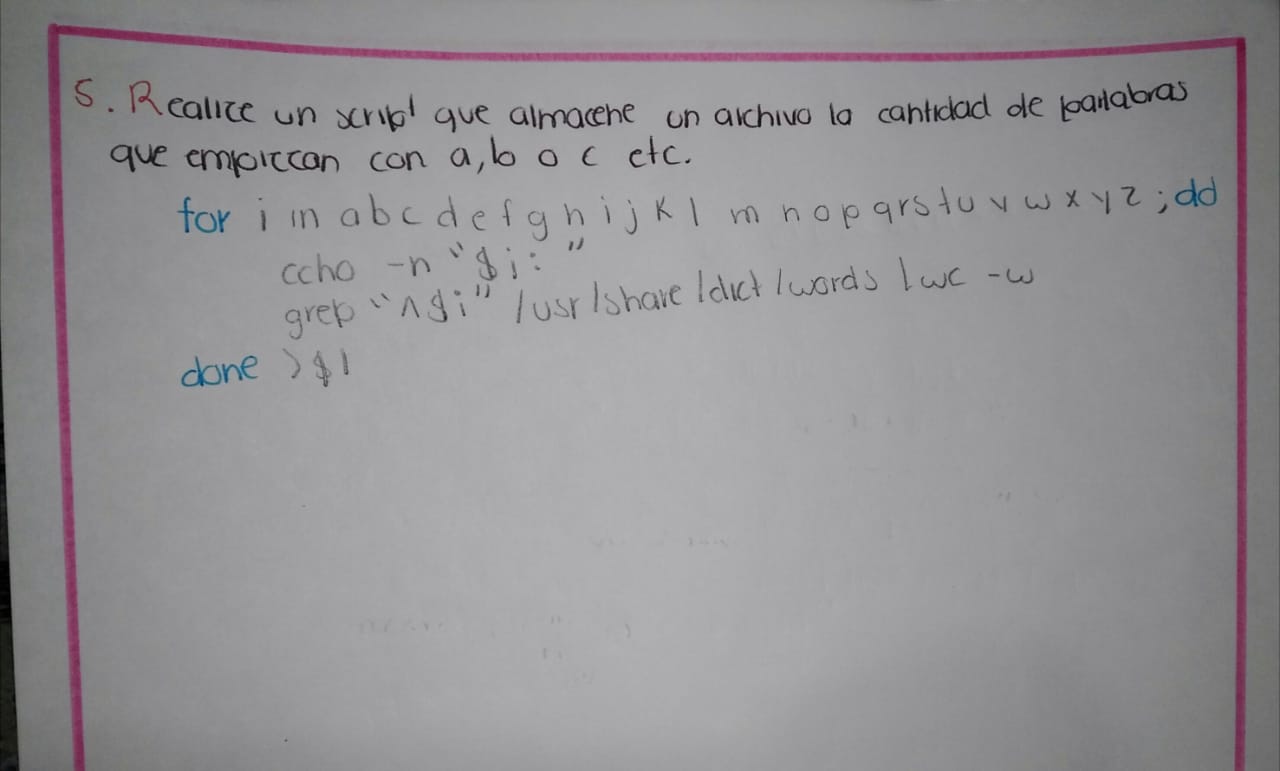 5. Realice un script que almacene un archivo la cantidad de palabras
que empiezan con a, b o c etc.
for i in a b c d e f g h i j k l m n o p q r s t u v w x y z ; do
echo -n "$i: "
grep "^$i" /usr/share/dict/words | wc -w
done >$1